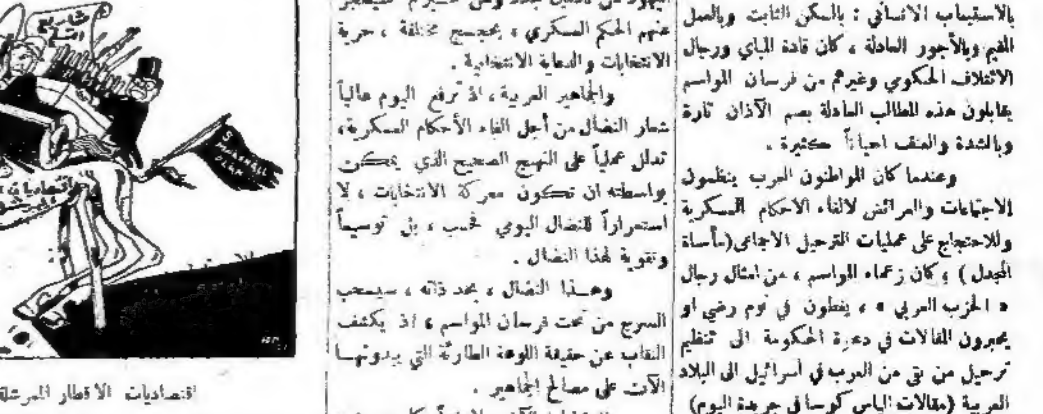 بالاستيعاب الانساني : بالسكن الثابت وبالعمل
القيم وبالأجور العادلة ، كان قادة الماباي ورجال
الائتلاف الحكومي وغيرهم من فرسان المواسم
يقابلون هذه المطالب العادلة بصم الآذان تارة
وبالشدة والعنف احياناً كثيرة .
وعندما كان المواطنون العرب ينظمون
الاجتماعات والعرائض لالغاء الاحكام العسكرية
وللاحتجاج على عمليات الترحيل الاجماعي (مأساة
المجدل ) ، كان زعماء المواسم ، من امثال رجال
« الحزب العربي » ، يغطون في نوم رضي او
يحبرون المقالات في دعوة الحكومة الى تنظيم
ترحيل من بقي من العرب في اسرائيل الى البلاد
العربية (مقالات الياس كوسا في جريدة اليوم)
عنهم الحكم العسكري ، بحجج مختلفة ، حرية
الانتخابات والدعاية الانتخابية .
والجماهير العربية ، اذ ترفع اليوم عالياً
شعار النضال من أجل الغاء الأحكام العسكرية ،
تدلل عملياً على النهج الصحيح الذي يمكن
بواسطته ان تكون معركة الانتخابات ، لا
استمراراً للنضال اليومي فحسب ، بل توسيعاً
وتقوية لهذا النضال .
وهذا النضال ، بحد ذاته ، سيسحب
السرج من تحت فرسان المواسم ، اذ يكشف
النقاب عن حقيقة اللوعة الطارئة التي يبدونها
الآن على مصالح الجماهير .
مشاريع
اقتصاديات
اقتصاديات الاقطار المرشلة